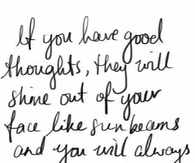 If you have good
thoughts, they will
shine out of your
face like sunbeams
and you will always